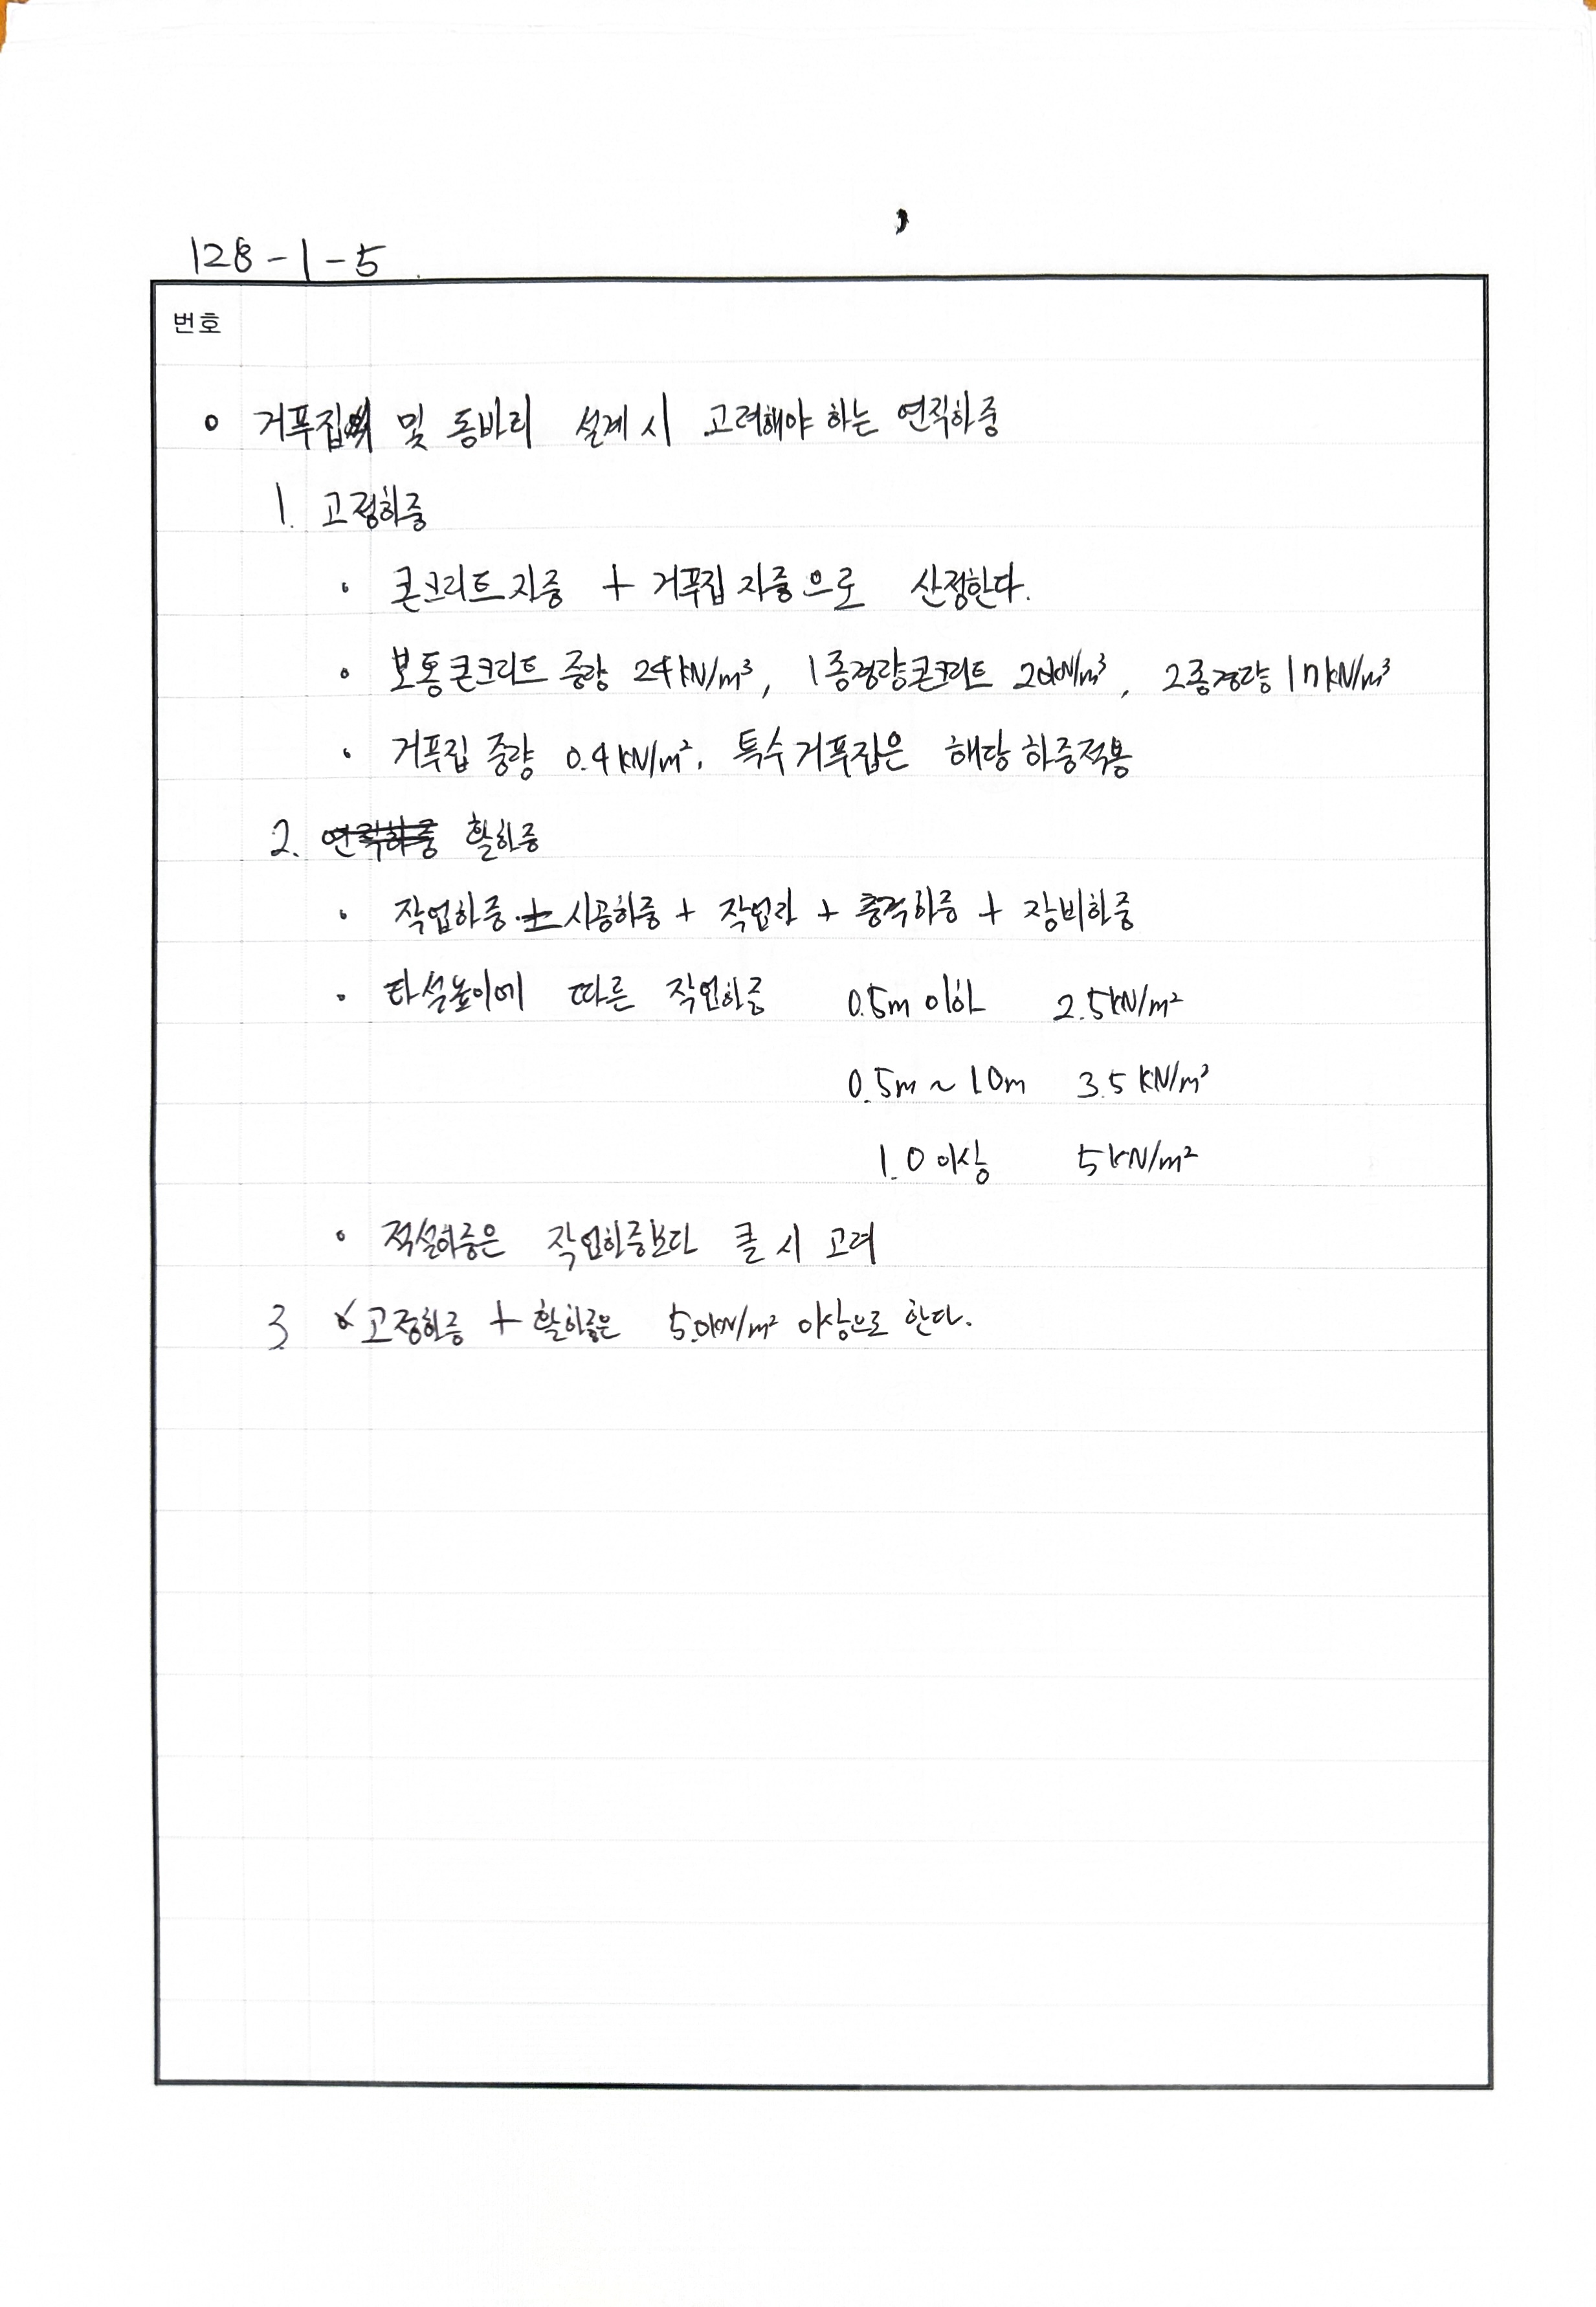 128-1-5.
번호
거푸집 및 동바리 설계 시 고려해야 하는 연직하중
1. 고정하중
• 콘크리트자중 + 거푸집 자중으로 산정한다.
• 보통콘크리트 중량 24kN/m³, 1종경량콘크리트 20kN/m³, 2종경량 17kN/m³
• 거푸집 중량 0.4kN/m². 특수거푸집은 해당 하중적용
2. 연직하중 활하중
• 작업하중 + 시공하중 + 작업자 + 충격하중 + 장비하중
• 타설높이에 따른 작업하중 0.5m 이하 2.5kN/m²
0.5m ~ 1.0m 3.5 kN/m²
1.0 이상 5kN/m²
• 적설하중은 작업하중보다 클 시 고려
3 고정하중 + 활하중은 5.0kN/m² 이상으로 한다.